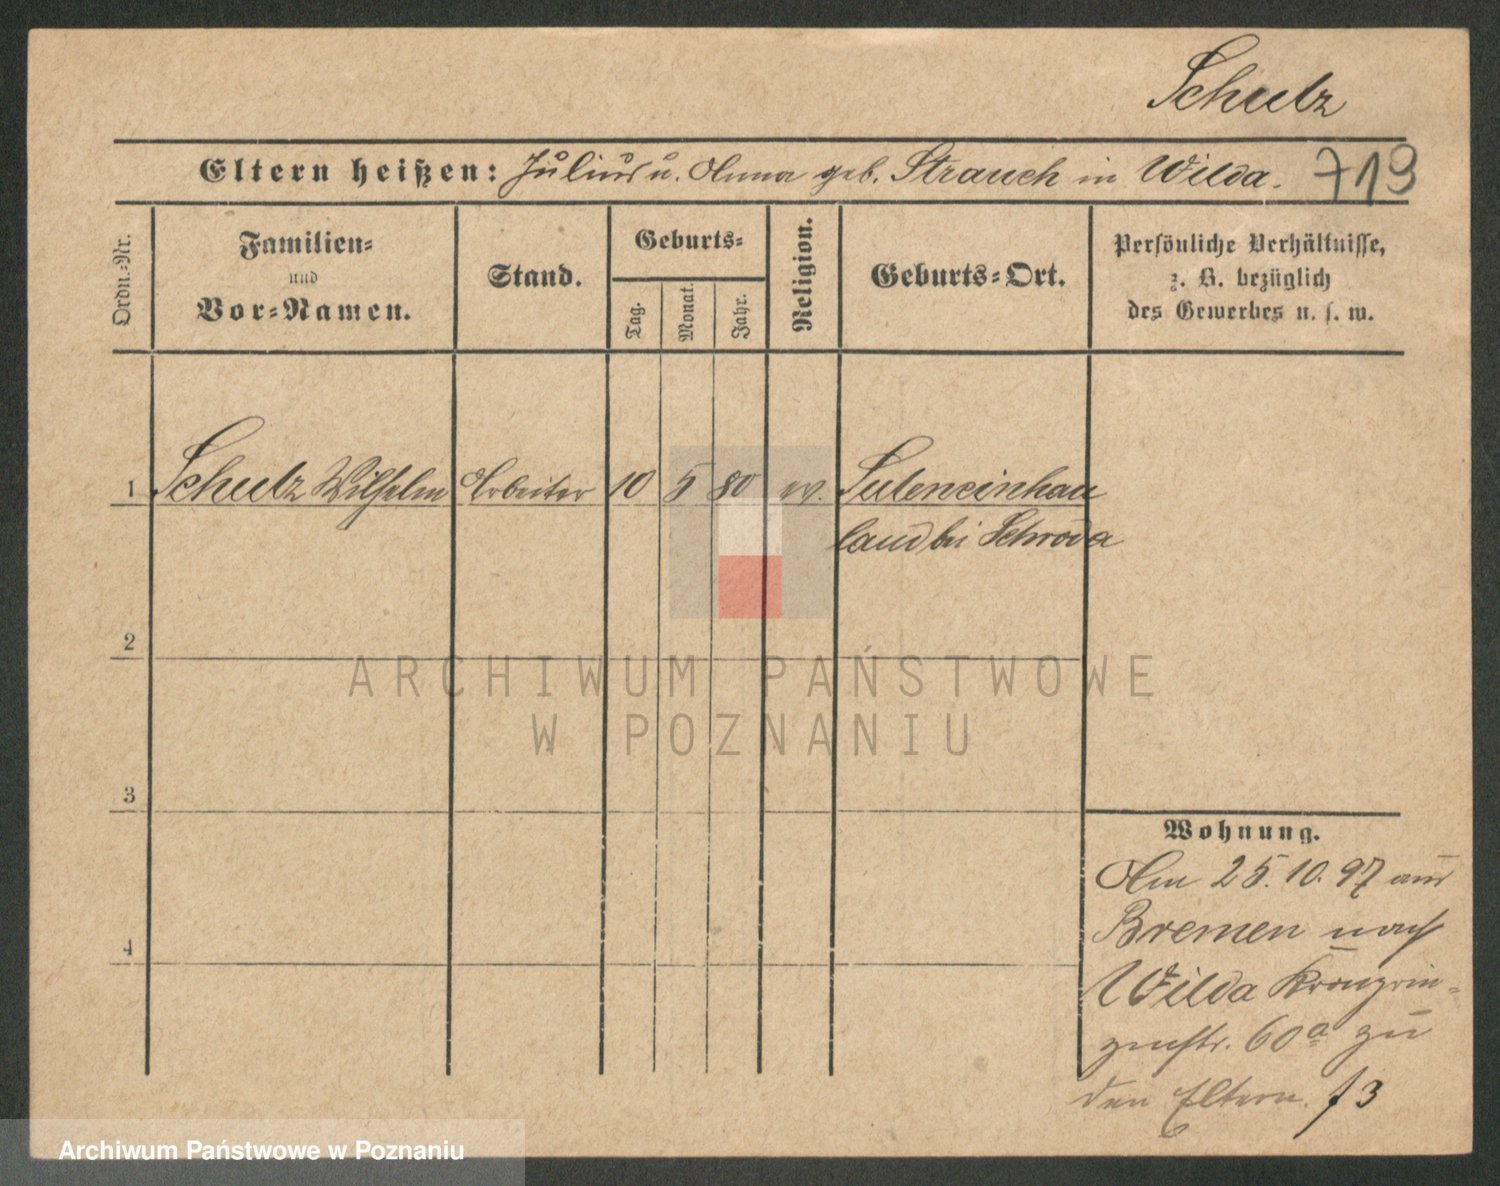 Schulz
Eltern heißen: Julius u. Anna geb. Strauch in Wilda. 719
Ordn.-Nr.
Familien-
und
Vor-Namen.
Stand.
Geburts-
Tag.
Monat.
Jahr.
Religion.
Geburts-Ort.
Persönliche Verhältnisse,
z. B. bezüglich
des Gewerbes u. s. w.
1 Schulz Wilhelm Arbeiter 10 5 80 ev.
land bei Schroda
2
3
4
Wohnung.
Am 25.10.97 aus
Bremen nach
Wilda Kronprin-
zenstr. 60a zu
den Eltern.
ARCHIWUM PAŃSTWOWE
W POZNANIU
Archiwum Państwowe w Poznaniu